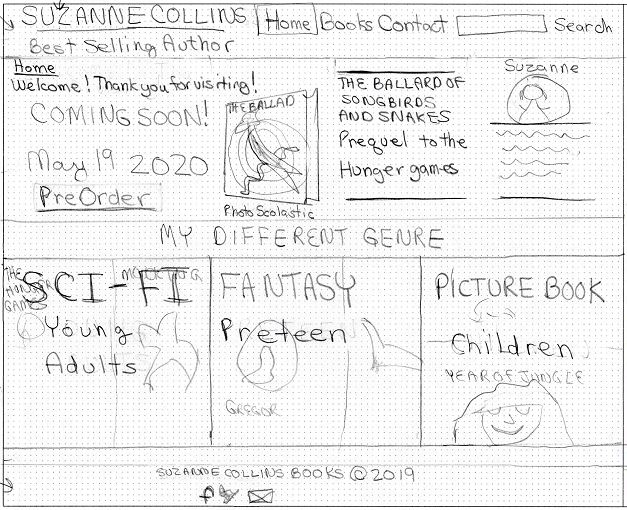 SUZANNE COLLINS Home Books Contact Search
Best Selling Author
Home
Welcome! Thank you for visiting!
COMING SOON!
May 19 2020
PreOrder
THE BALLAD
Photo Scolastic
THE BALLARD OF
SONGBIRDS
AND SNAKES
Prequel to the
Hunger games
Suzanne
MY DIFFERENT GENRE
THE
HUNGER
GAMES
SCI-FI
Young
Adults
FANTASY
Preteen
GREGOR
PICTURE BOOK
Children
YEAR OF JUNGLE
SUZANNE COLLINS BOOKS © 2019